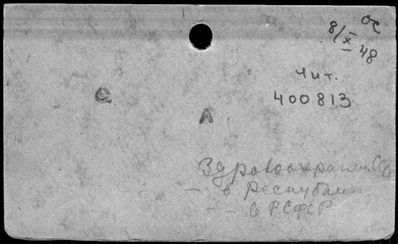 ос
8/X 48
Чит.
400813
С
А
Здравоохранен. СССР
— в республик
— в РСФСР